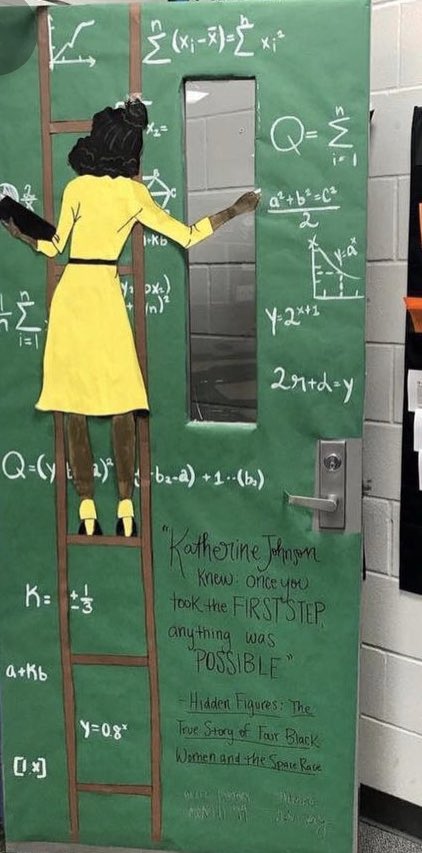 n n
∑ (xᵢ-x̄)=∑ xᵢ²
x₂=
Q= n
∑
i=1
a²+b²=c²
2
x
y=aˣ
+Kb
1
n ∑
i=1
y=2ˣ⁺¹
2r+d=y
Q=(y
2)²
b₂-a) +1··(b₂)
"Katherine Johnson
knew: once you
took the FIRST STEP,
anything was
POSSIBLE"
K= ±1/3
- Hidden Figures: The
True Story of Four Black
Women and the Space Race
a+Kb
y=0.8ˣ
[1.x]